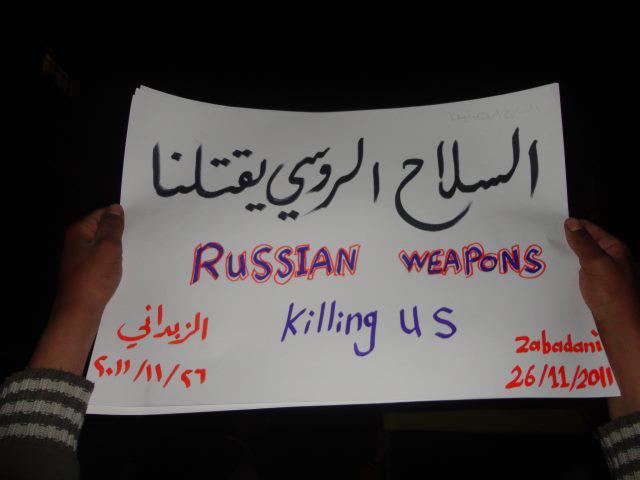 السلاح الروسي يقتلنا
RUSSIAN WEAPONS
Killing US
الزبداني
٢٠١١/١١/٢٦
Zabadani
26/11/2011